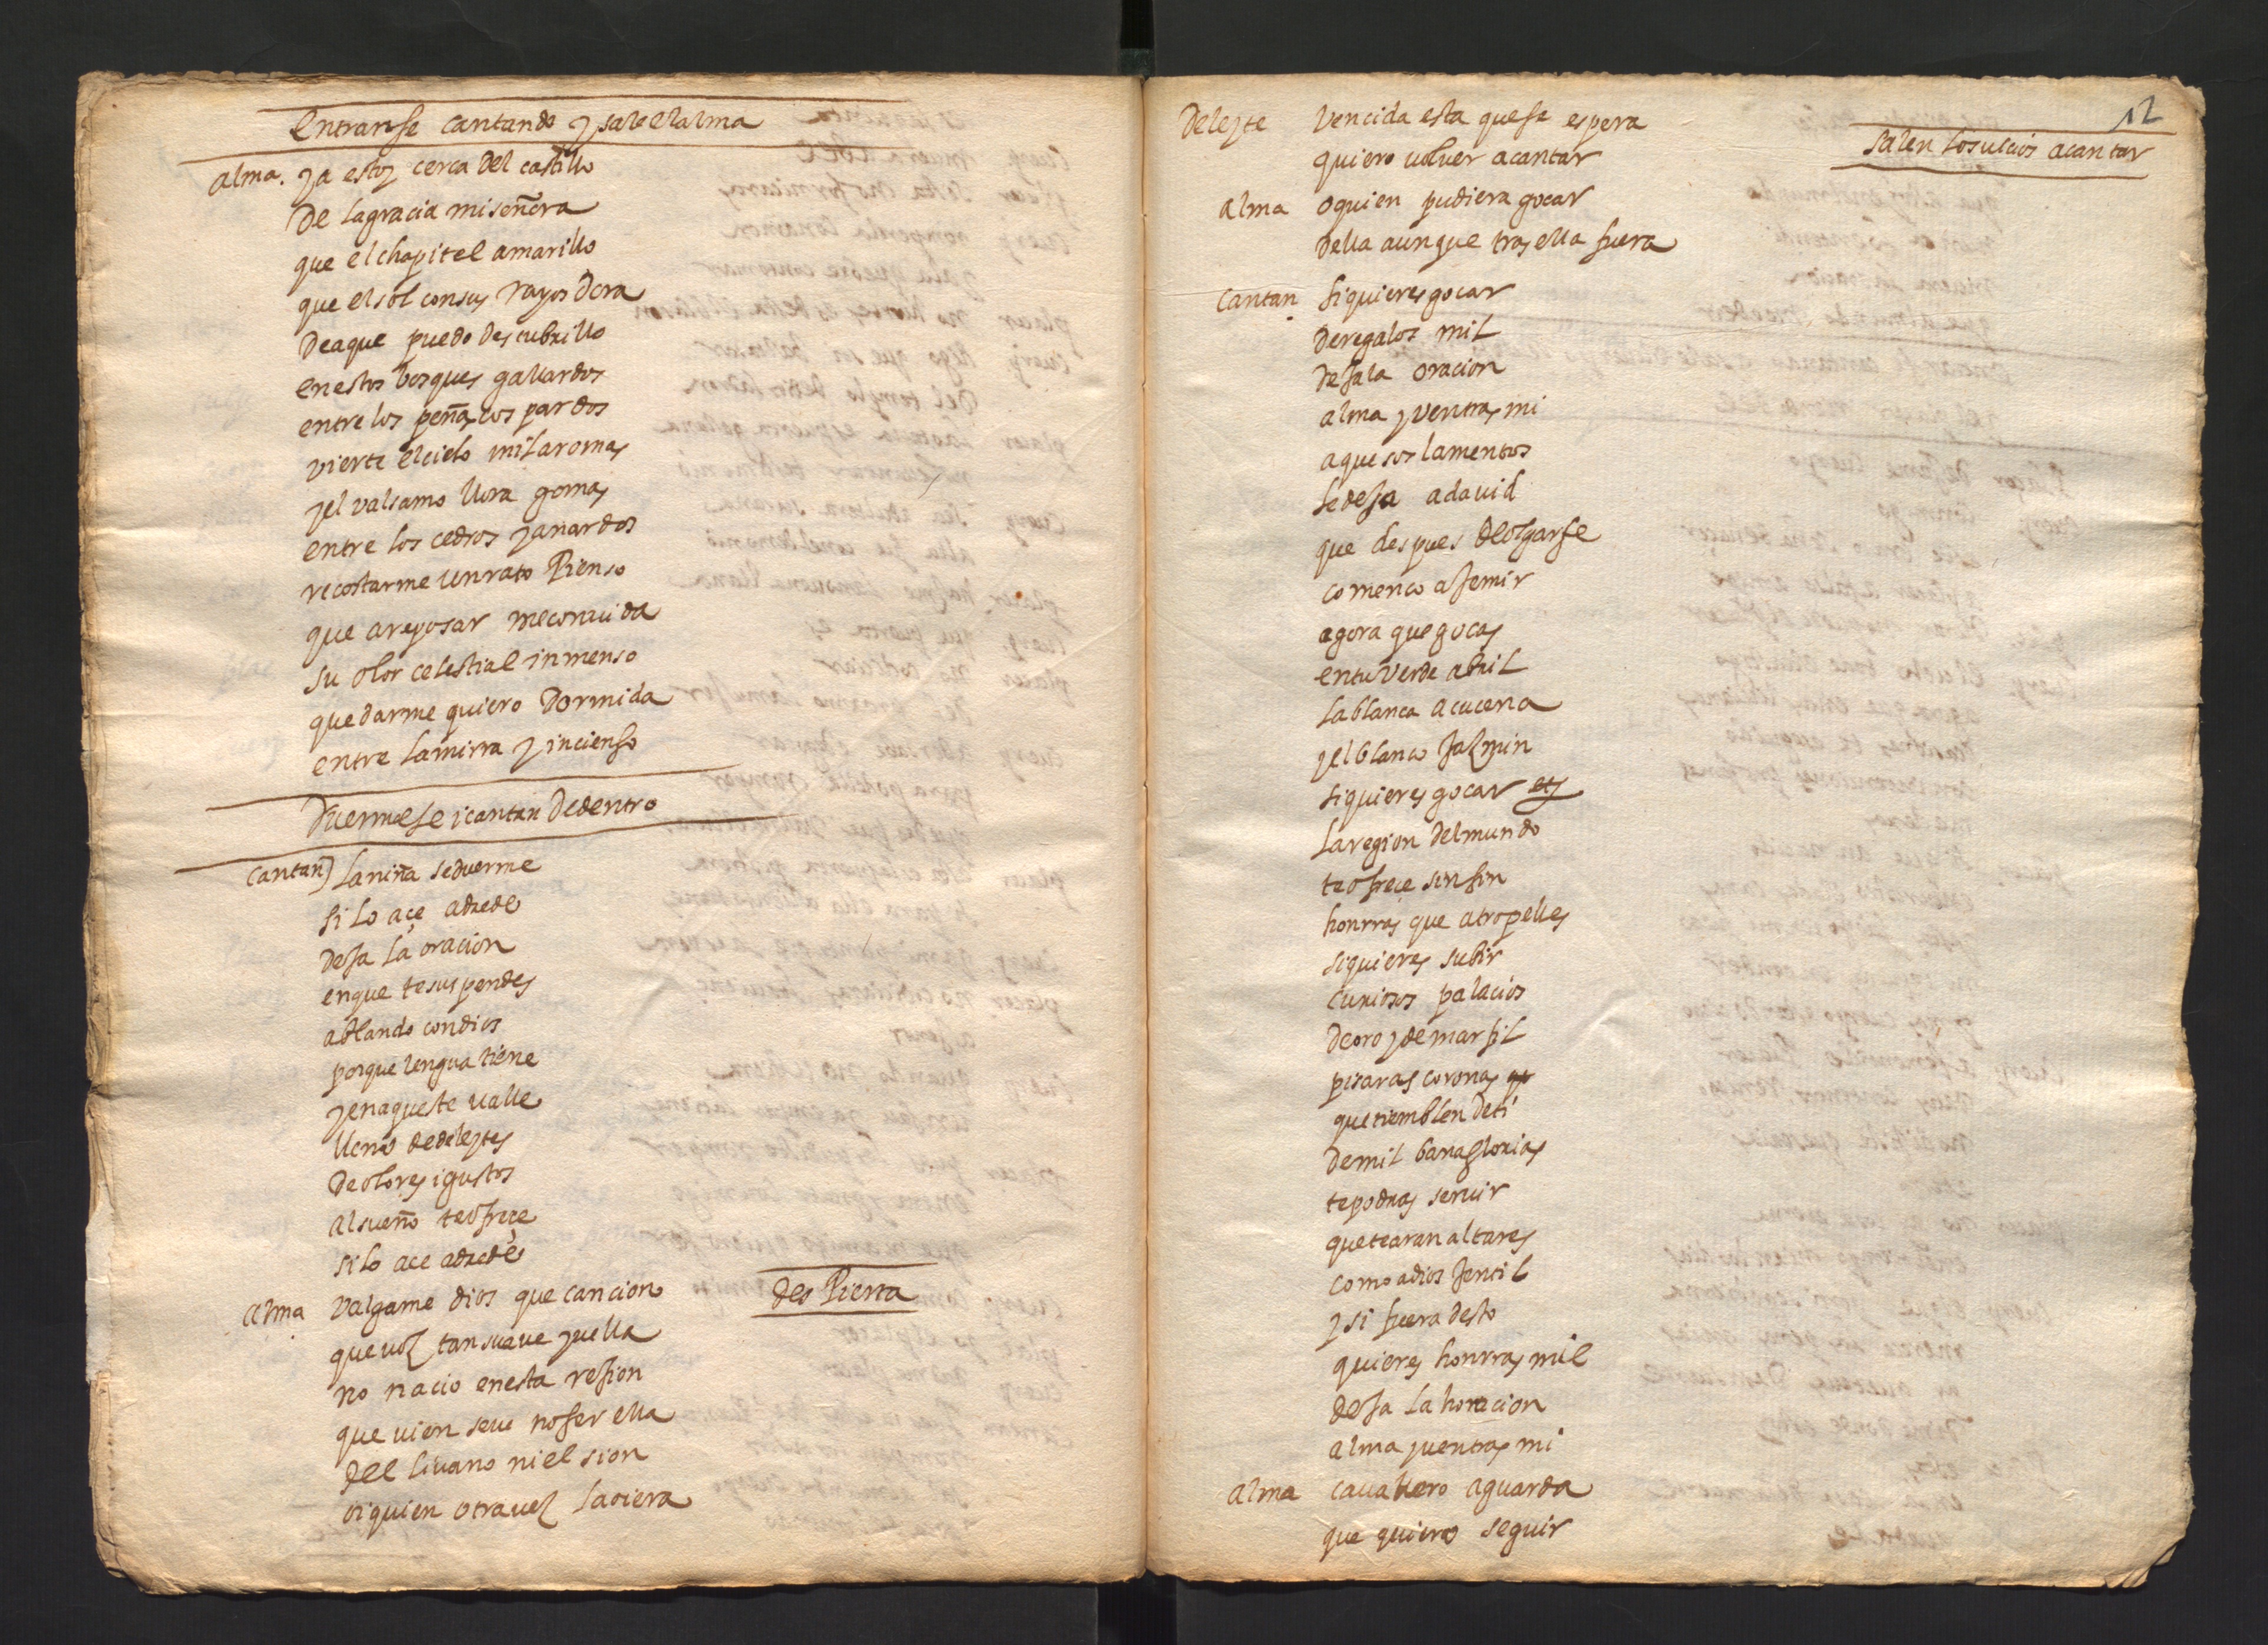 entranse cantando y sale el alma
alma. ya estoy cerca del castillo
de la gracia mi señora
que el chapitel amarillo
que el sol con sus rayos dora
deaque puedo descubrillo
en estos bosques gallardos
entre los peñascos pardos
vierte el cielo mil aromas
y el valsamo llora gomas
entre los cedros y anardos
recostarme un rato Pienso
que a reposar me convida
su olor celestial inmenso
quedarme quiero dormida
entre la mirra y incienso
duermese i cantan de dentro
cantan) la niña se duerme
si lo açe adrede
deja la oracion
en que te suspendes
ablando con dios
porque lengua tiene
y en aqueste valle
lleno de deleytes
de olores i gustos
al sueño te ofreçe
si lo ace adrede
alma valgame dios que cancion
des Pierta
que voz tan suave y vella
no nacio en esta rejion
que vien se ve no ser ella
del livano ni el sion
o quien otra vez la oiera
12
deleyte vencida esta que se espera
salen los vicios a cantar
quiero volver a cantar
alma o quien pudiera gocar
della aunque tras ella fuera
cantan si quieres gocar
de regalos mil
deja la oracion
alma y ventras mi
aquesos lamentos
se deja a david
que despues de olgarse
comenco a jemir
agora que gocas
en tu verde abril
la blanca acucena
y el blanco jazmin
si quieres gocar etz
la region del mundo
te ofrece sin fin
honrras que atropelles
si quieres subir
curiosos palacios
de oro y de marfil
pisaras coronas
que tiemblen de ti
de mil banaglorias
te podras servir
que te aran altares
como a dios jentil
y si fuera desto
quieres honrras mil
deja la horacion
alma y ventras mi
alma cavallero aguarda
que quiero seguir